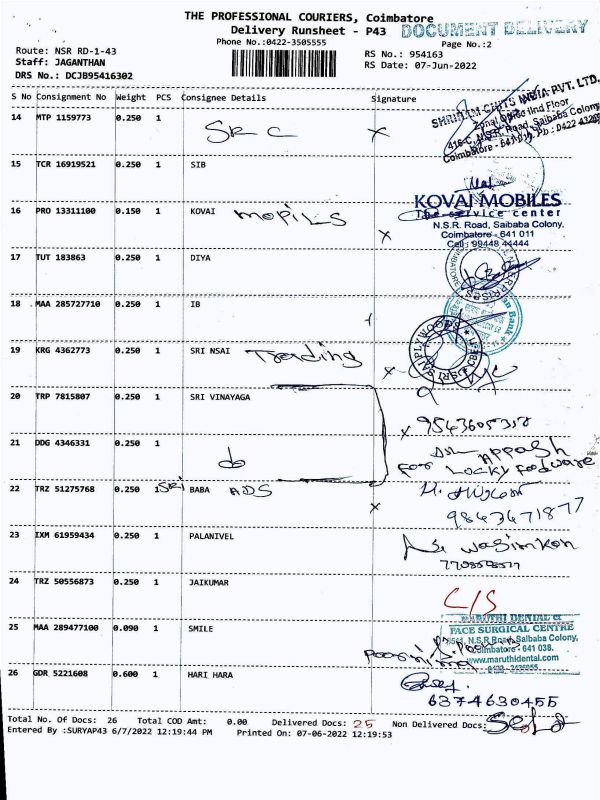 THE PROFESSIONAL COURIERS, Coimbatore
Delivery Runsheet - P43
DOCUMENT DELIVERY
Phone No.:0422-3505555
Page No.:2
Route: NSR RD-1-43
RS No.: 954163
Staff: JAGANTHAN
RS Date: 07-Jun-2022
DRS No.: DCJB95416302
S No Consignment No Weight PCS Consignee Details Signature
14 MTP 1159773 0.250 1 SRC x
SHRIRAM CHITS INDIA PVT. LTD.
Zonal Office IInd Floor
416-C, N.S.R. Road, Saibaba Colony
Coimbatore - 641 011. Ph : 0422 4326
15 TCR 16919521 0.250 1 SIB
16 PRO 13311100 0.150 1 KOVAI MOPILS x
KOVAI MOBILES
The service center
N.S.R. Road, Saibaba Colony,
Coimbatore - 641 011
Cell : 99448 44444
17 TUT 183863 0.250 1 DIYA
18 MAA 285727710 0.250 1 IB
19 KRG 4362773 0.250 1 SRI NSAI Trading x
SRI SAI PLYWOODS
20 TRP 7815807 0.250 1 SRI VINAYAGA x
21 DDG 4346331 0.250 1 do
For Lucky
22 TRZ 51275768 0.250 1 SRI BABA ADS x
9843671877
23 IXM 61959434 0.250 1 PALANIVEL
24 TRZ 50556873 0.250 1 JAIKUMAR
C/S
25 MAA 289477100 0.090 1 SMILE
MARUTHI DENTAL &
FACE SURGICAL CENTRE
N.S.R Road, Saibaba Colony,
Coimbatore - 641 038.
www.maruthidental.com
26 GDR 5221608 0.600 1 HARI HARA
6374630455
Total No. Of Docs: 26 Total COD Amt: 0.00 Delivered Docs: 25 Non Delivered Docs:
Entered By :SURYAP43 6/7/2022 12:19:44 PM Printed On: 07-06-2022 12:19:53